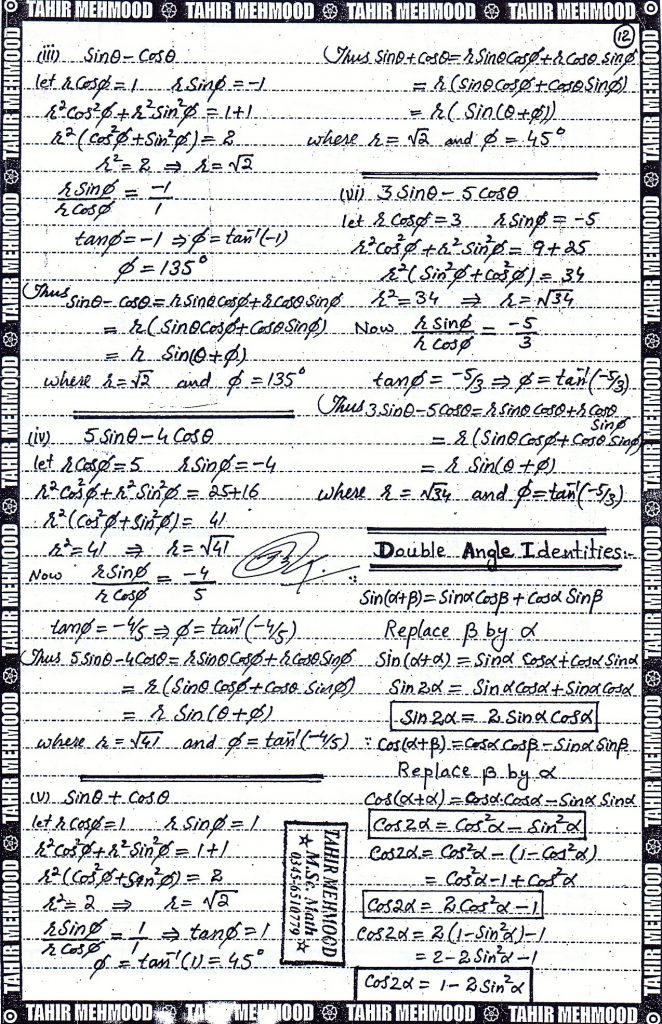 TAHIR MEHMOOD TAHIR MEHMOOD TAHIR MEHMOOD TAHIR MEHMOOD
12
(iii) Sinθ - Cosθ
let r Cosϕ = 1 r Sinϕ = -1
r²Cos²ϕ + r²Sin²ϕ = 1+1
r²(Cos²ϕ + Sin²ϕ) = 2
r² = 2 ⇒ r = √2
r Sinϕ / r Cosϕ = -1/1
tanϕ = -1 ⇒ ϕ = tan⁻¹(-1)
ϕ = 135°
Thus Sinθ - Cosθ = r Sinθ Cosϕ + r Cosθ Sinϕ
= r (Sinθ Cosϕ + Cosθ Sinϕ)
= r Sin(θ+ϕ)
where r = √2 and ϕ = 135°
(iv) 5 Sinθ - 4 Cosθ
let r Cosϕ = 5 r Sinϕ = -4
r²Cos²ϕ + r²Sin²ϕ = 25+16
r²(Cos²ϕ + Sin²ϕ) = 41
r² = 41 ⇒ r = √41
Now r Sinϕ / r Cosϕ = -4/5
tanϕ = -4/5 ⇒ ϕ = tan⁻¹(-4/5)
Thus 5 Sinθ - 4 Cosθ = r Sinθ Cosϕ + r Cosθ Sinϕ
= r (Sinθ Cosϕ + Cosθ Sinϕ)
= r Sin(θ+ϕ)
where r = √41 and ϕ = tan⁻¹(-4/5)
(v) Sinθ + Cosθ
let r Cosϕ = 1 r Sinϕ = 1
r²Cos²ϕ + r²Sin²ϕ = 1+1
r²(Cos²ϕ + Sin²ϕ) = 2
r² = 2 ⇒ r = √2
r Sinϕ / r Cosϕ = 1/1 ⇒ tanϕ = 1
ϕ = tan⁻¹(1) = 45°
TAHIR MEHMOOD
M.Sc. Math
0345-6510779
Thus Sinθ + Cosθ = r Sinθ Cosϕ + r Cosθ Sinϕ
= r (Sinθ Cosϕ + Cosθ Sinϕ)
= r ( Sin(θ+ϕ))
where r = √2 and ϕ = 45°
(vi) 3 Sinθ - 5 Cosθ
let r Cosϕ = 3 r Sinϕ = -5
r²Cos²ϕ + r² Sin²ϕ = 9+25
r²(Sin²ϕ + Cos²ϕ) = 34
r² = 34 ⇒ r = √34
Now r Sinϕ / r Cosϕ = -5/3
tanϕ = -5/3 ⇒ ϕ = tan⁻¹(-5/3)
Thus 3 Sinθ - 5 Cosθ = r Sinθ Cosθ + r Cosθ
Sinϕ
= r (Sinθ Cosϕ + Cosθ Sinϕ)
= r Sin(θ+ϕ)
where r = √34 and ϕ = tan⁻¹(-5/3)
Double Angle Identities:-
∵ Sin(α+β) = Sinα Cosβ + Cosα Sinβ
Replace β by α
Sin(α+α) = Sinα Cosα + Cosα Sinα
Sin 2α = Sinα Cosα + Sinα Cosα
Sin 2α = 2 Sinα Cosα
∵ Cos(α+β) = Cosα Cosβ - Sinα Sinβ
Replace β by α
Cos(α+α) = Cosα.Cosα - Sinα Sinα
Cos2α = Cos²α - Sin²α
Cos2α = Cos²α - (1-Cos²α)
= Cos²α - 1 + Cos²α
Cos2α = 2 Cos²α - 1
Cos2α = 2(1-Sin²α) - 1
= 2 - 2 Sin²α - 1
Cos2α = 1 - 2 Sin²α
TAHIR MEHMOOD TAHIR MEHMOOD TAHIR MEHMOOD TAHIR MEHMOOD
TAHIR MEHMOOD TAHIR MEHMOOD TAHIR MEHMOOD TAHIR MEHMOOD TAHIR MEHMOOD TAHIR MEHMOOD
TAHIR MEHMOOD TAHIR MEHMOOD TAHIR MEHMOOD TAHIR MEHMOOD TAHIR MEHMOOD TAHIR MEHMOOD